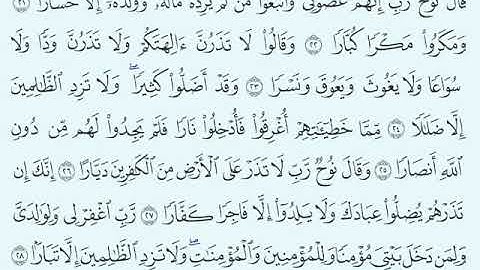 قَالَ نُوحٌ رَّبِّ إِنَّهُمْ عَصَوْنِى وَٱتَّبَعُوا۟ مَن لَّمْ يَزِدْهُ مَالُهُۥ وَوَلَدُهُۥٓ إِلَّا خَسَارًا ٢١
وَمَكَرُوا۟ مَكْرًا كُبَّارًا ٢٢ وَقَالُوا۟ لَا تَذَرُنَّ ءَالِهَتَكُمْ وَلَا تَذَرُنَّ وَدًّا وَلَا
سُوَاعًا وَلَا يَغُوثَ وَيَعُوقَ وَنَسْرًا ٢٣ وَقَدْ أَضَلُّوا۟ كَثِيرًا ۖ وَلَا تَزِدِ ٱلظَّـٰلِمِينَ
إِلَّا ضَلَـٰلًا ٢٤ مِّمَّا خَطِيٓـَٔـٰتِهِمْ أُغْرِقُوا۟ فَأُدْخِلُوا۟ نَارًا فَلَمْ يَجِدُوا۟ لَهُم مِّن دُونِ
ٱللَّهِ أَنصَارًا ٢٥ وَقَالَ نُوحٌ رَّبِّ لَا تَذَرْ عَلَى ٱلْأَرْضِ مِنَ ٱلْكَـٰفِرِينَ دَيَّارًا ٢٦ إِنَّكَ إِن
تَذَرْهُمْ يُضِلُّوا۟ عِبَادَكَ وَلَا يَلِدُوٓا۟ إِلَّا فَاجِرًا كَفَّارًا ٢٧ رَّبِّ ٱغْفِرْ لِى وَلِوَٰلِدَىَّ
وَلِمَن دَخَلَ بَيْتِىَ مُؤْمِنًا وَلِلْمُؤْمِنِينَ وَٱلْمُؤْمِنَـٰتِ ۖ وَلَا تَزِدِ ٱلظَّـٰلِمِينَ إِلَّا تَبَارًۢا ٢٨